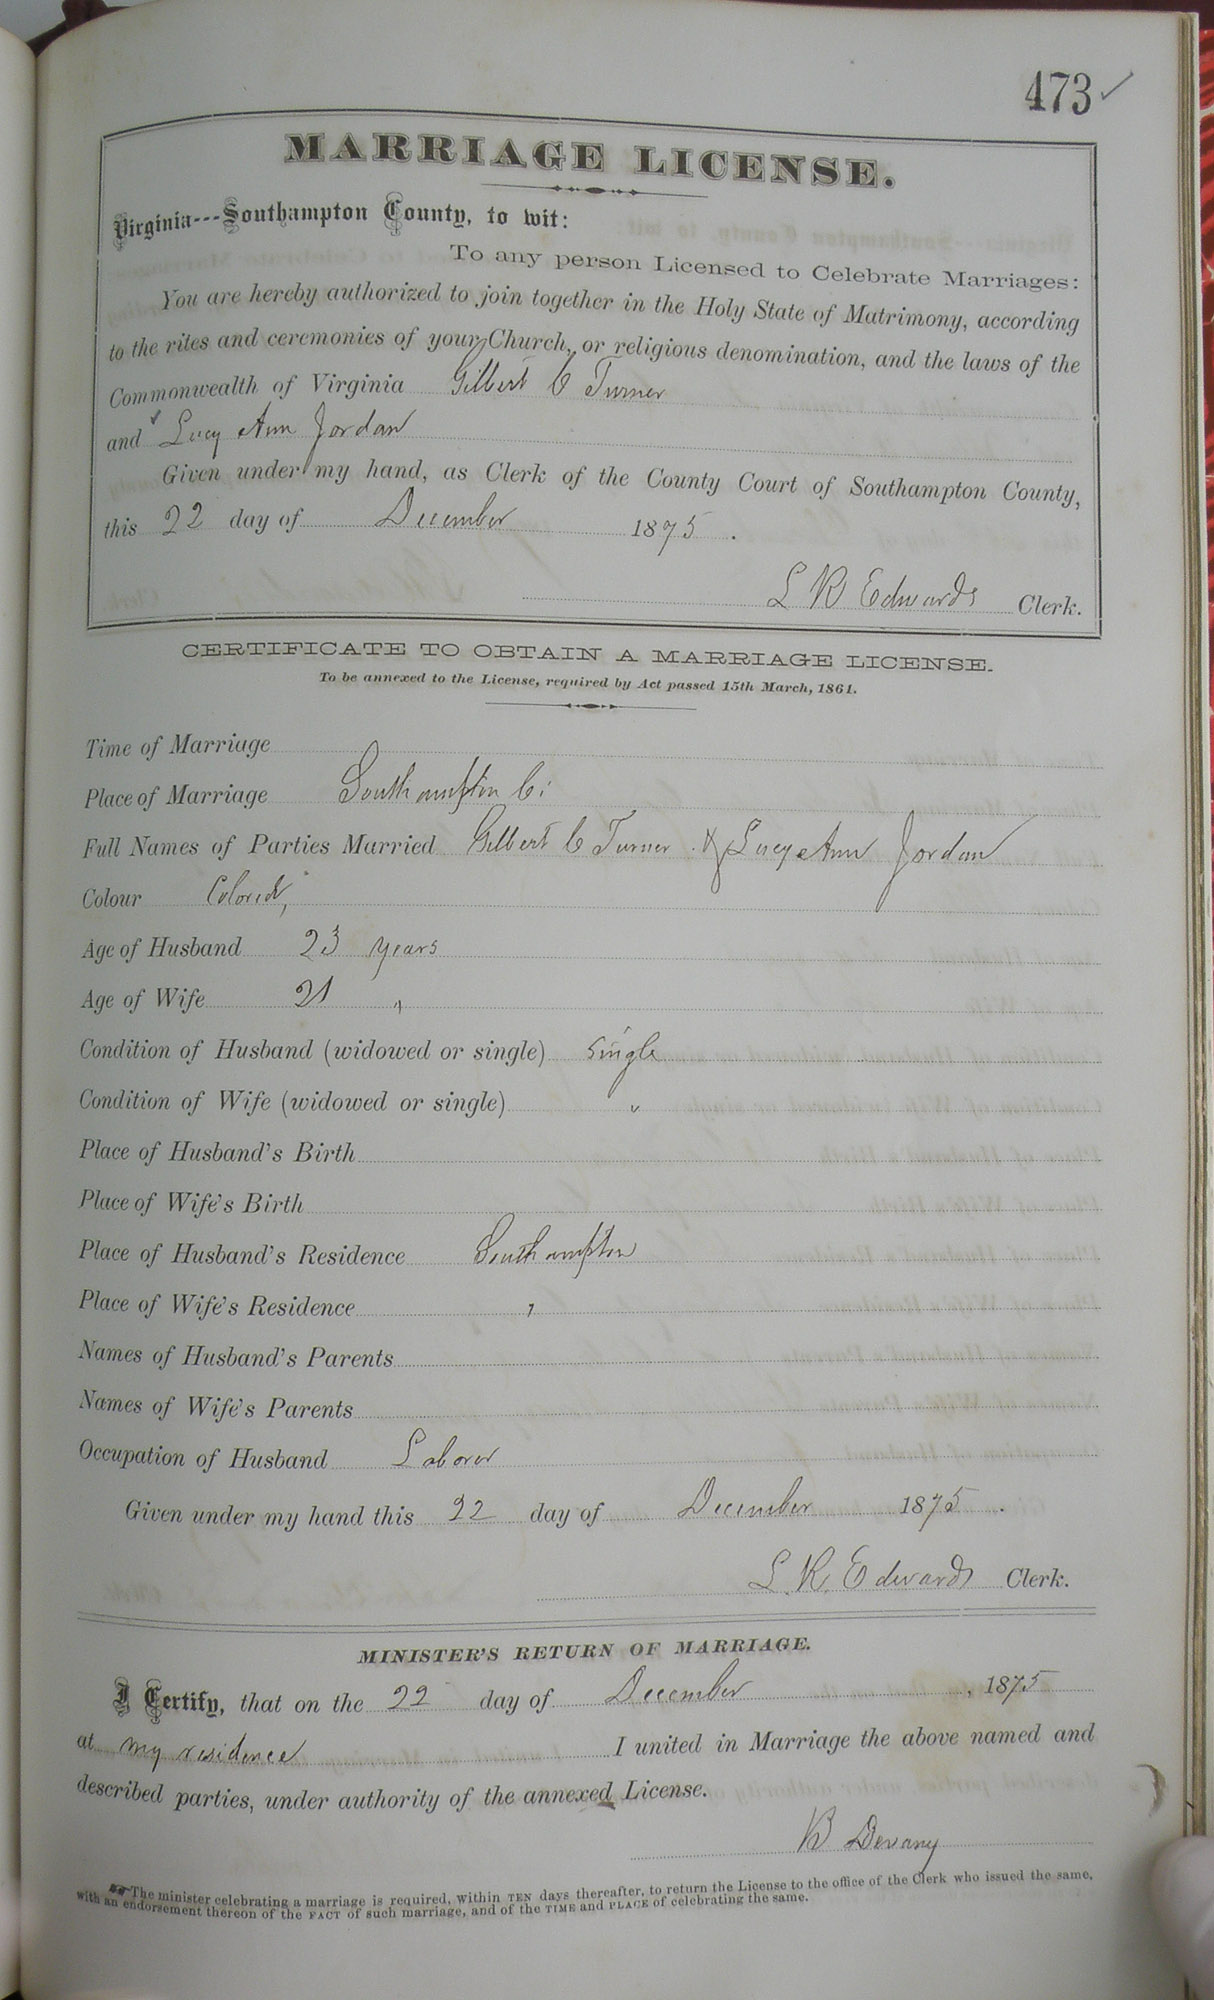 473 ✓
MARRIAGE LICENSE.
Virginia---Southampton County, to wit:
To any person Licensed to Celebrate Marriages:
You are hereby authorized to join together in the Holy State of Matrimony, according
to the rites and ceremonies of your Church, or religious denomination, and the laws of the
Commonwealth of Virginia Gilbert C Turner
and Lucy Ann Jordan
Given under my hand, as Clerk of the County Court of Southampton County,
this 22 day of December 1875.
L R Edwards Clerk.
CERTIFICATE TO OBTAIN A MARRIAGE LICENSE.
To be annexed to the License, required by Act passed 15th March, 1861.
Time of Marriage
Place of Marriage Southampton Co:
Full Names of Parties Married Gilbert C Turner & Lucy Ann Jordan
Colour Colored,
Age of Husband 23 years
Age of Wife 21 "
Condition of Husband (widowed or single) Single
Condition of Wife (widowed or single) "
Place of Husband's Birth
Place of Wife's Birth
Place of Husband's Residence Southampton
Place of Wife's Residence "
Names of Husband's Parents
Names of Wife's Parents
Occupation of Husband Laborer
Given under my hand this 22 day of December 1875.
L. R. Edwards Clerk.
MINISTER'S RETURN OF MARRIAGE.
I Certify, that on the 22 day of December, 1875
at my residence I united in Marriage the above named and
described parties, under authority of the annexed License.
B Devany
The minister celebrating a marriage is required, within TEN days thereafter, to return the License to the office of the Clerk who issued the same,
with an endorsement thereon of the FACT of such marriage, and of the TIME and PLACE of celebrating the same.